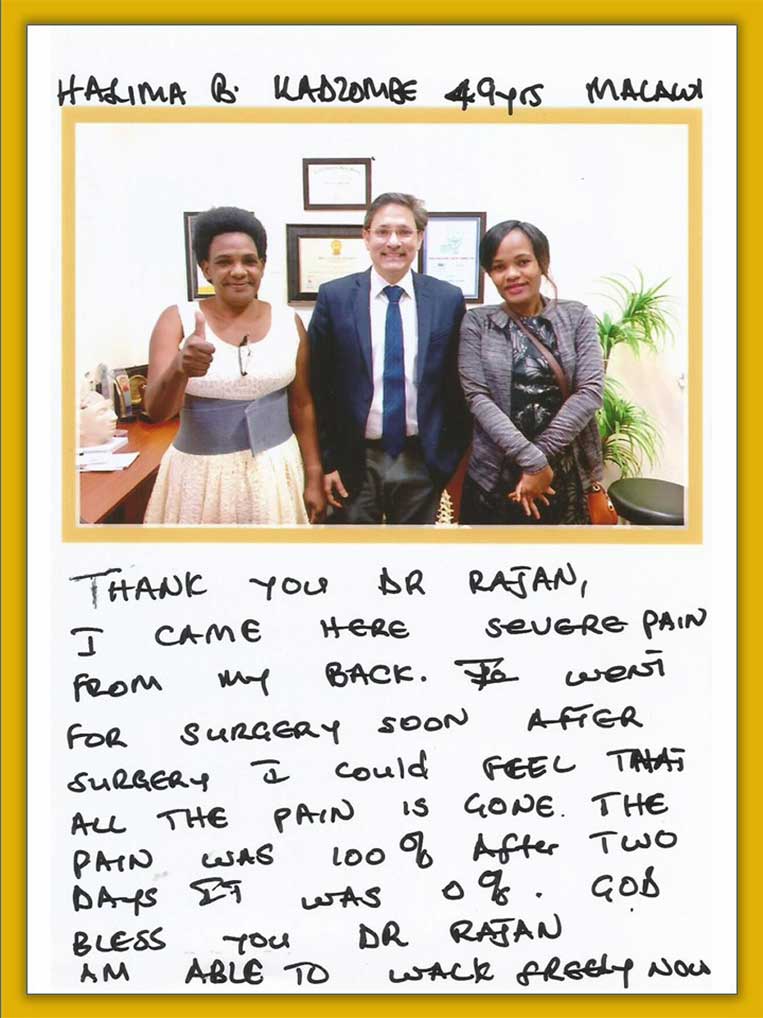 HALIMA B. KADZOMBE 49yrs MALAWI
THANK YOU DR RAJAN,
I CAME HERE SEVERE PAIN
FROM MY BACK. I WENT
FOR SURGERY SOON AFTER
SURGERY I could FEEL THAT
ALL THE PAIN IS GONE. THE
PAIN WAS 100% After TWO
DAYS IT WAS 0%. GOD
BLESS YOU DR RAJAN
AM ABLE TO WALK FREELY NOW